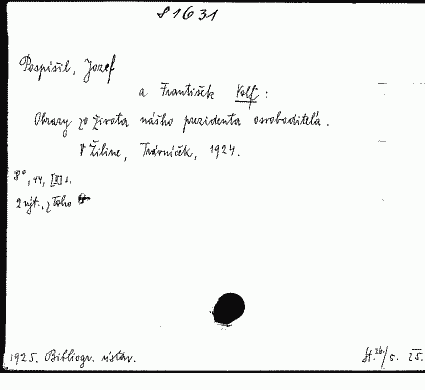 81631
Pospíšil, Jozef
a František Volf:
Obrazy zo života nášho prezidenta osvoboditeľa.
V Žiline, Trávníček, 1924.
8°, 44, [II] s.
2 výt., z toho
1925. Bibliogr. ústav. 26/5. 25.